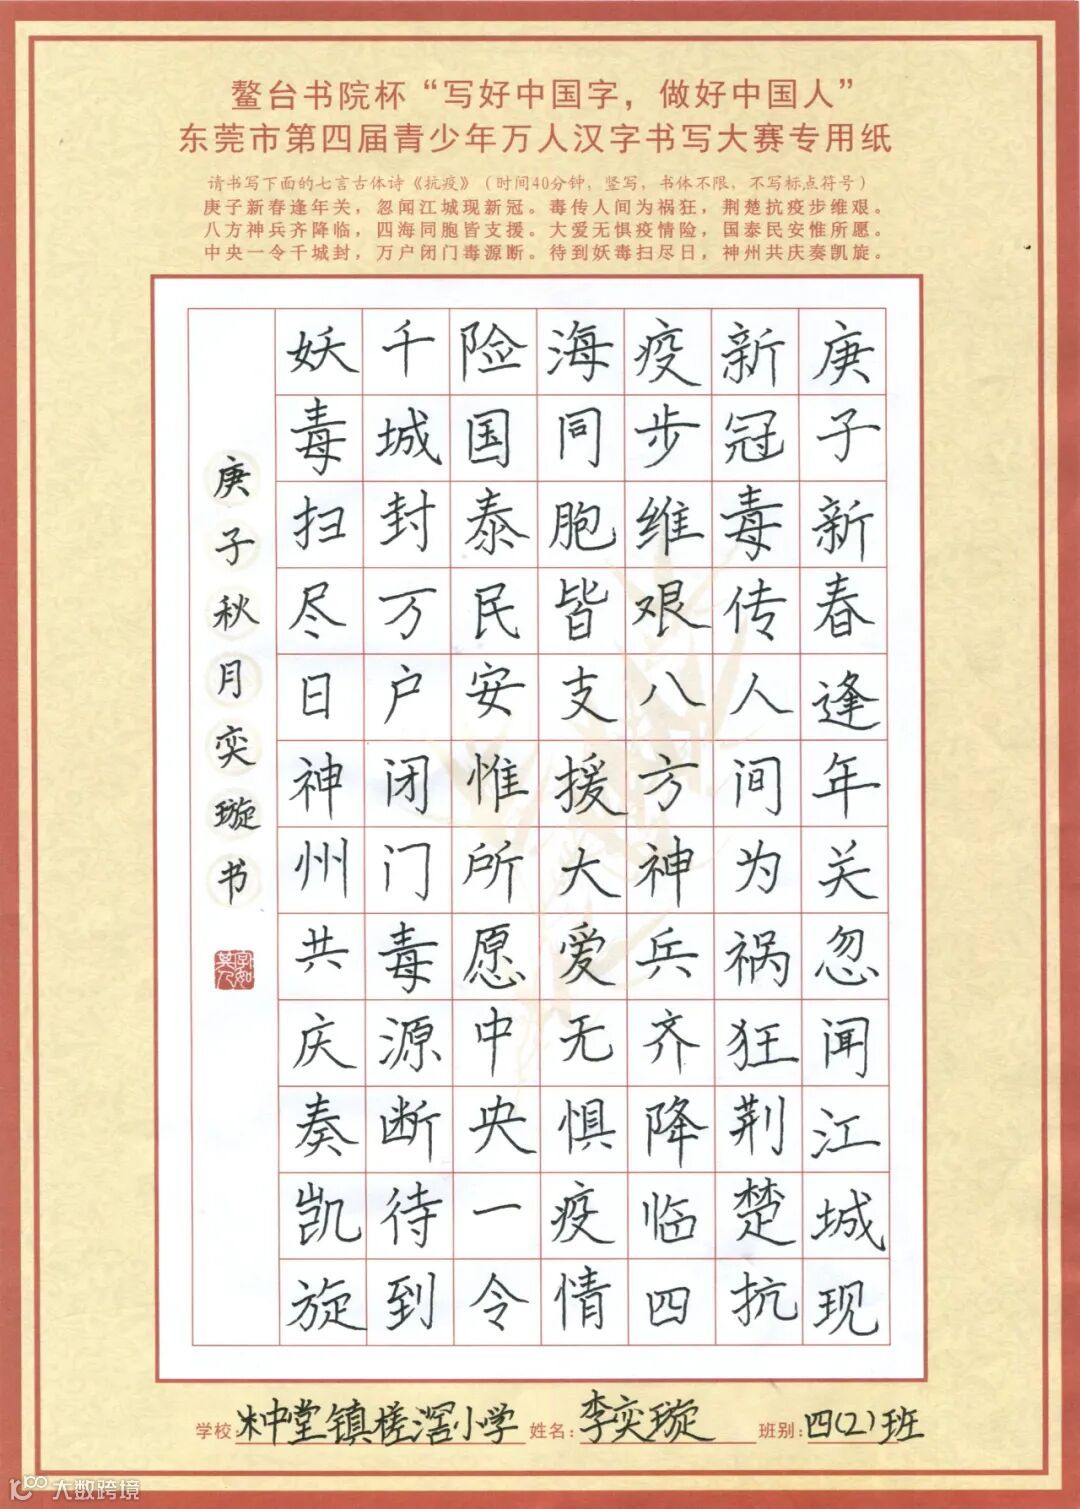 鳌台书院杯“写好中国字，做好中国人”
东莞市第四届青少年万人汉字书写大赛专用纸
请书写下面的七言古体诗《抗疫》（时间40分钟，竖写，书体不限，不写标点符号）
庚子新春逢年关，忽闻江城现新冠。毒传人间为祸狂，荆楚抗疫步维艰。
八方神兵齐降临，四海同胞皆支援。大爱无惧疫情险，国泰民安惟所愿。
中央一令千城封，万户闭门毒源断。待到妖毒扫尽日，神州共庆奏凯旋。
庚子新春逢年关忽闻江城现
新冠毒传人间为祸狂荆楚抗
疫步维艰八方神兵齐降临四
海同胞皆支援大爱无惧疫情
险国泰民安惟所愿中央一令
千城封万户闭门毒源断待到
妖毒扫尽日神州共庆奏凯旋
庚子秋月奕璇书
字如其人
学校:中堂镇槎滘小学 姓名:李奕璇 班别:四(2)班
大数跨境